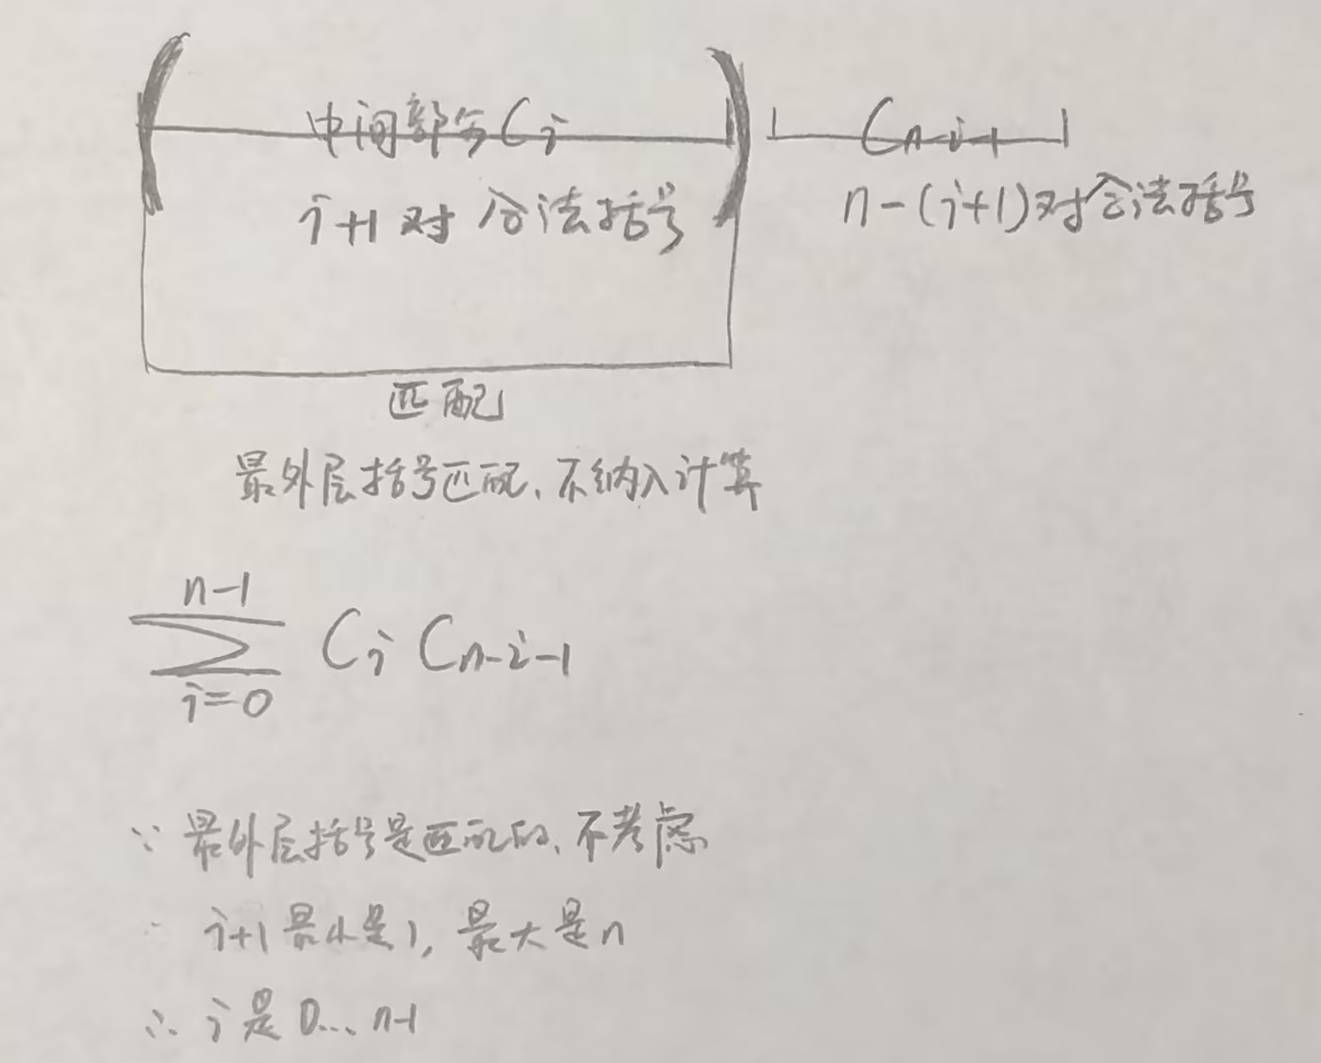 ( 中间部分 Ci ) Cn-i-1
i+1 对 合法括号 n-(i+1)对合法括号
匹配
最外层括号匹配、不纳入计算
n-1
∑ Ci Cn-i-1
i=0
∵ 最外层括号是匹配的、不考虑
∴ i+1 最小是1, 最大是n
∴ i是 0... n-1